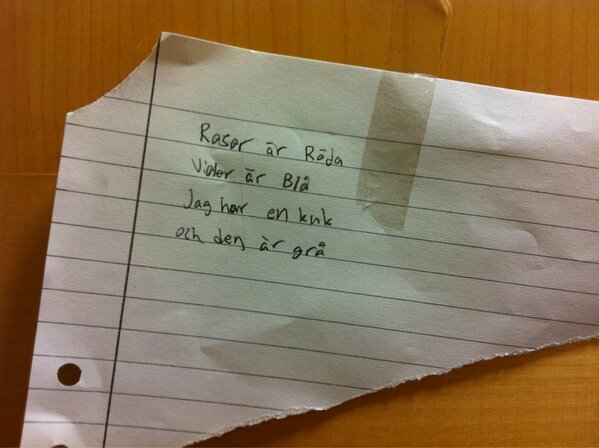 Rosor är Röda
Violer är Blå
Jag har en kuk
och den är grå